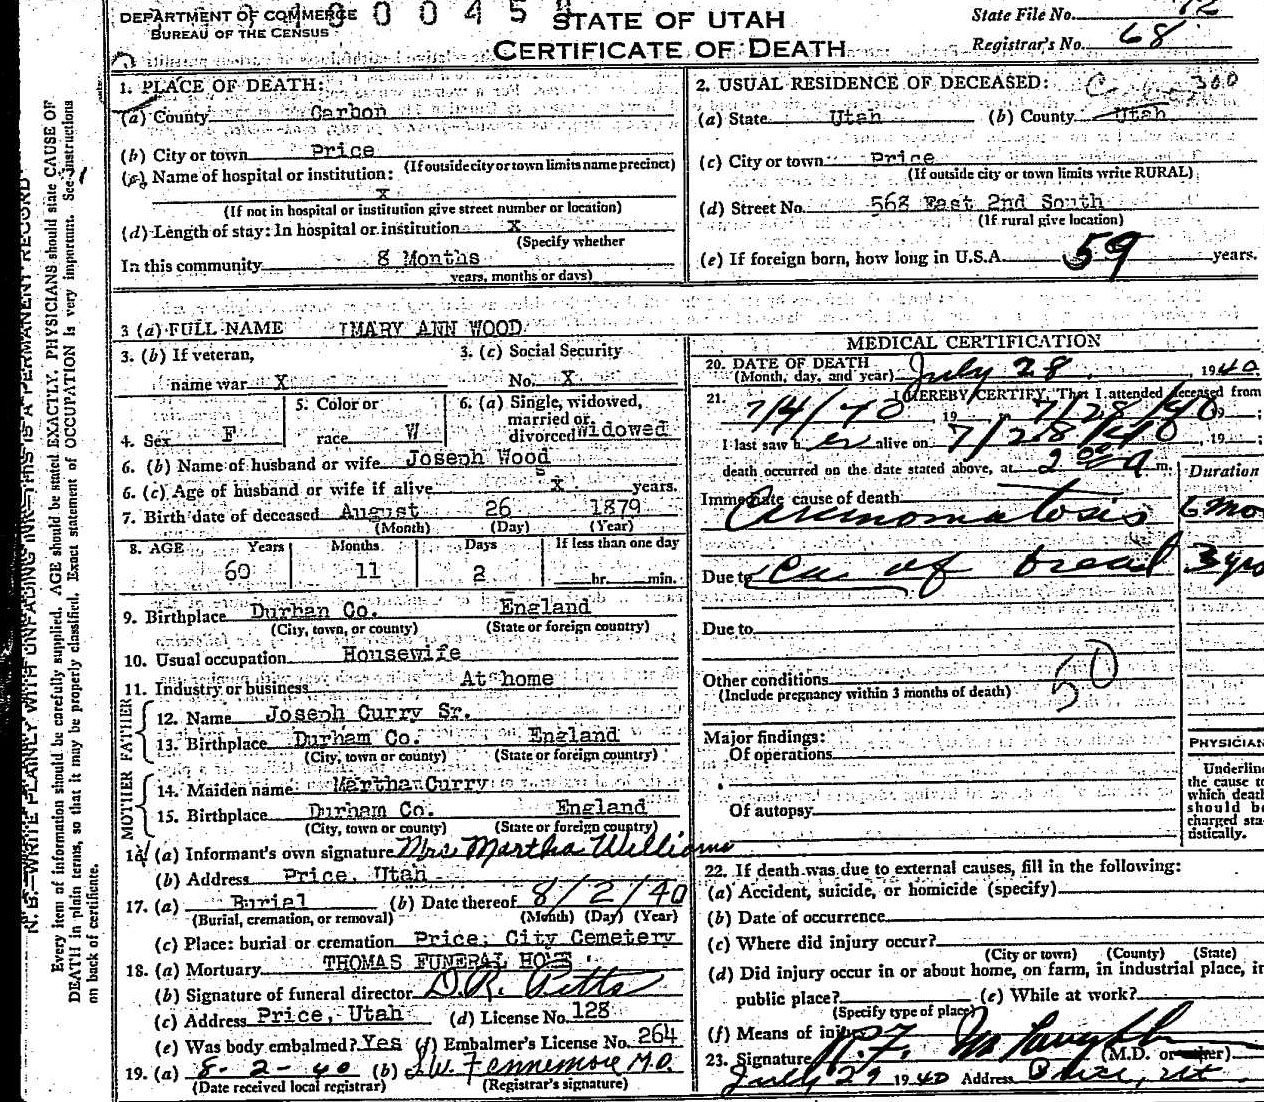 DEPARTMENT OF COMMERCE
BUREAU OF THE CENSUS
STATE OF UTAH
CERTIFICATE OF DEATH
State File No. 72
Registrar's No. 68
N. B.—WRITE PLAINLY WITH UNFADING INK—THIS IS A PERMANENT RECORD
Every item of information should be carefully supplied. AGE should be stated EXACTLY. PHYSICIANS should state CAUSE OF
DEATH in plain terms, so that it may be properly classified. Exact statement of OCCUPATION is very important. See instructions
on back of certificate.
1. PLACE OF DEATH:
(a) County Carbon
(b) City or town Price
(If outside city or town limits name precinct)
(c) Name of hospital or institution:
X
(If not in hospital or institution give street number or location)
(d) Length of stay: In hospital or institution X
(Specify whether
In this community 8 Months
years, months or days)
2. USUAL RESIDENCE OF DECEASED:
(a) State Utah (b) County Utah
(c) City or town Price
(If outside city or town limits write RURAL)
(d) Street No. 568 East 2nd South
(If rural give location)
(e) If foreign born, how long in U.S.A. 59 years.
3 (a) FULL NAME MARY ANN WOOD
3. (b) If veteran,
name war X
3. (c) Social Security
No. X
4. Sex F
5. Color or
race W
6. (a) Single, widowed,
married or
divorced Widowed
6. (b) Name of husband or wife Joseph Wood
6. (c) Age of husband or wife if alive X years.
7. Birth date of deceased August 26 1879
(Month) (Day) (Year)
8. AGE Years Months Days If less than one day
60 11 2 hr. min.
9. Birthplace Durhan Co. England
(City, town, or county) (State or foreign country)
10. Usual occupation Housewife
11. Industry or business At home
FATHER
12. Name Joseph Curry Sr.
13. Birthplace Durham Co. England
(City, town or county) (State or foreign country)
MOTHER
14. Maiden name Martha Curry
15. Birthplace Durham Co. England
(City, town or county) (State or foreign country)
16. (a) Informant's own signature Mrs Martha Williams
(b) Address Price, Utah
17. (a) Burial (b) Date thereof 8/2/40
(Burial, cremation, or removal) (Month) (Day) (Year)
(c) Place: burial or cremation Price, City Cemetery
18. (a) Mortuary THOMAS FUNERAL HOME
(b) Signature of funeral director D.R. Pitts
(c) Address Price, Utah (d) License No. 128
(e) Was body embalmed? Yes (f) Embalmer's License No. 264
19. (a) 8-2-40 (b) Fennemore M.D.
(Date received local registrar) (Registrar's signature)
MEDICAL CERTIFICATION
20. DATE OF DEATH
(Month, day, and year) July 28, 1940
21. I HEREBY CERTIFY, That I attended deceased from
7/4/40 19 7/28/40 19 ;
I last saw her alive on 7/28/40, 19 ;
death occurred on the date stated above, at 2 00 a m.
Duration
Immediate cause of death
Carcinomatosis 6 mo
Due to Ca of breast 3 yrs
Due to
Other conditions
(Include pregnancy within 3 months of death)
50
Major findings:
Of operations
Of autopsy
PHYSICIAN
Underline
the cause to
which death
should be
charged sta-
tistically.
22. If death was due to external causes, fill in the following:
(a) Accident, suicide, or homicide (specify)
(b) Date of occurrence
(c) Where did injury occur?
(City or town) (County) (State)
(d) Did injury occur in or about home, on farm, in industrial place, in
public place? (e) While at work?
(Specify type of place)
(f) Means of injury
23. Signature (M.D. or other)
July 29 1940 Address Price, Ut.